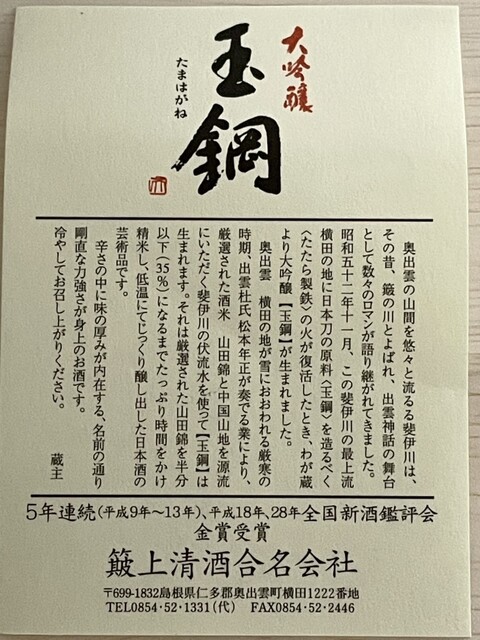 大吟醸
玉鋼
たまはがね
奥出雲の山間を悠々と流るる斐伊川は、
その昔、簸の川とよばれ、出雲神話の舞台
として数々のロマンが語り継がれてきました。
昭和五十二年十一月、この斐伊川の最上流
横田の地に日本刀の原料〈玉鋼〉を造るべく
〈たたら製鉄〉の火が復活したとき、わが蔵
より大吟醸【玉鋼】が生まれました。
奥出雲 横田の地が雪におおわれる厳寒の
時期、出雲杜氏 松本年正が奏でる業により、
厳選された酒米 山田錦と中国山地を源流
にいただく斐伊川の伏流水を使って【玉鋼】は
生まれます。それは厳選された山田錦を半分
以下(35%)になるまでたっぷり時間をかけ
精米し、低温にてじっくり醸し出した日本酒の
芸術品です。
辛さの中に味の厚みが内在する、名前の通り
剛直な力強さが身上のお酒です。
冷やしてお召し上がりください。
蔵主
5年連続(平成9年〜13年)、平成18年、28年全国新酒鑑評会
金賞受賞
簸上清酒合名会社
〒699-1832島根県仁多郡奥出雲町横田1222番地
TEL0854・52・1331(代) FAX0854・52・2446